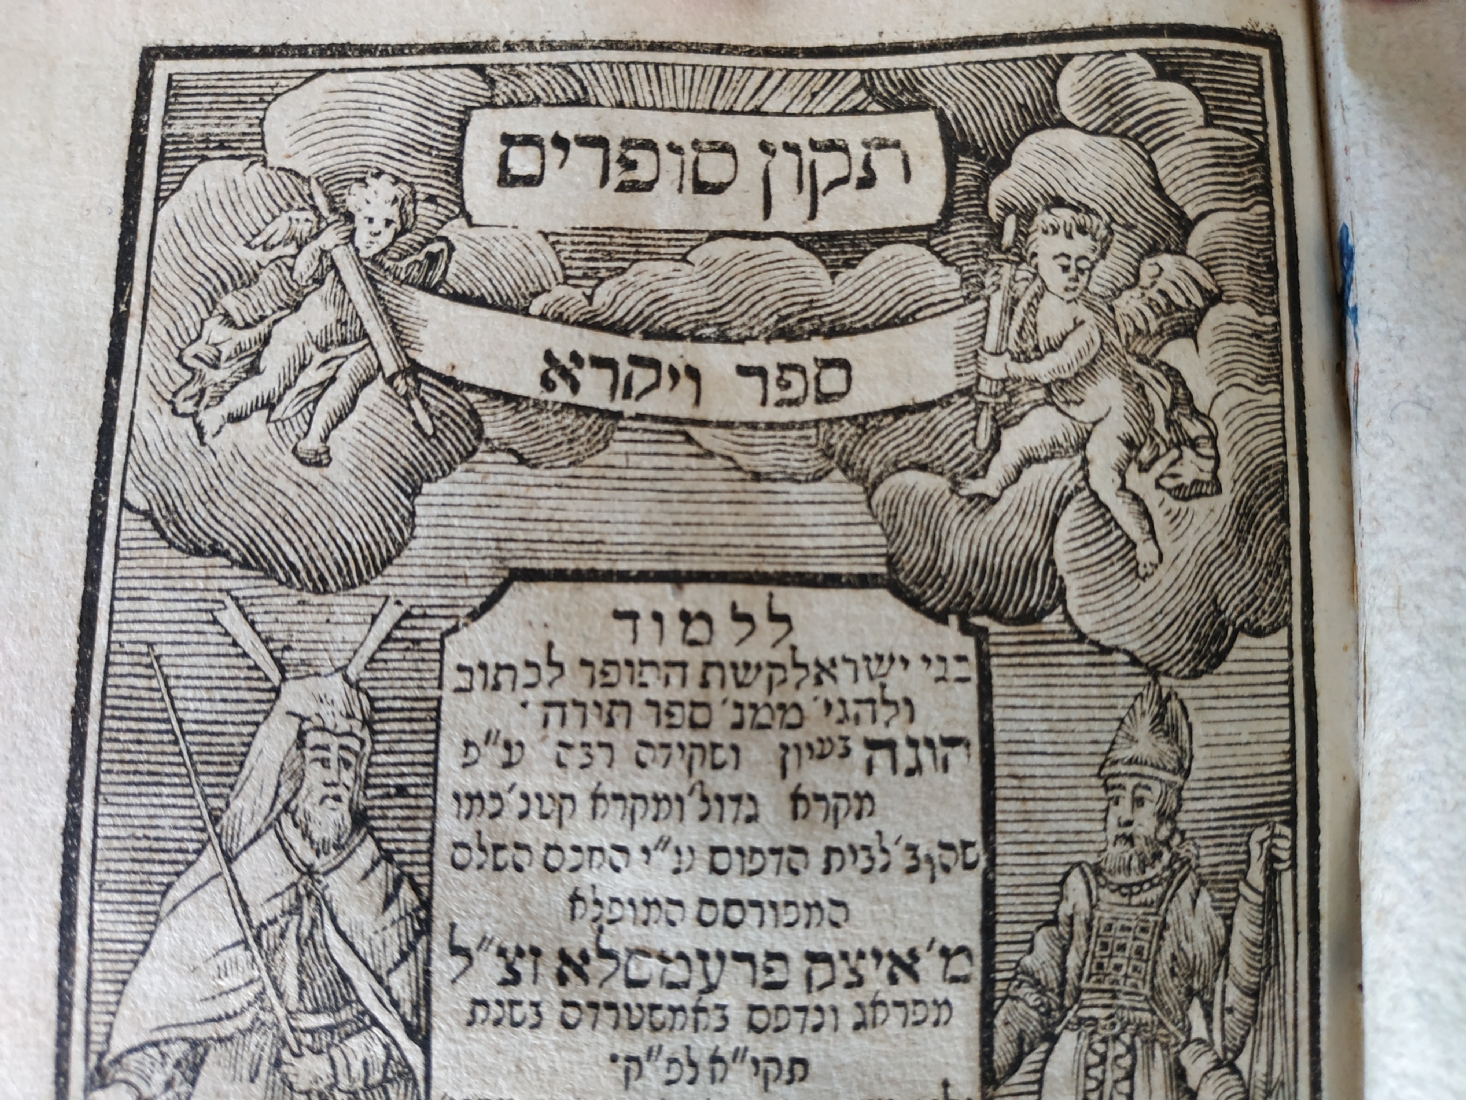 תקון סופרים
ספר ויקרא
ללמוד
בני ישראל קשת הסופר לכתוב
ולהגי׳ ממנ׳ ספר תורה·
הוגה בעיון ושקידה רבה ע״פ
מקרא גדול׳ ומקרא קטנ׳ כמו
לבית הדפוס ע״י החכם השלם
המפורסם המופלא
מ׳ איצק פרעמסלא זצ״ל
מפראג ונדפס באמשטרדם בשנת
תקי״א לפ״ק·